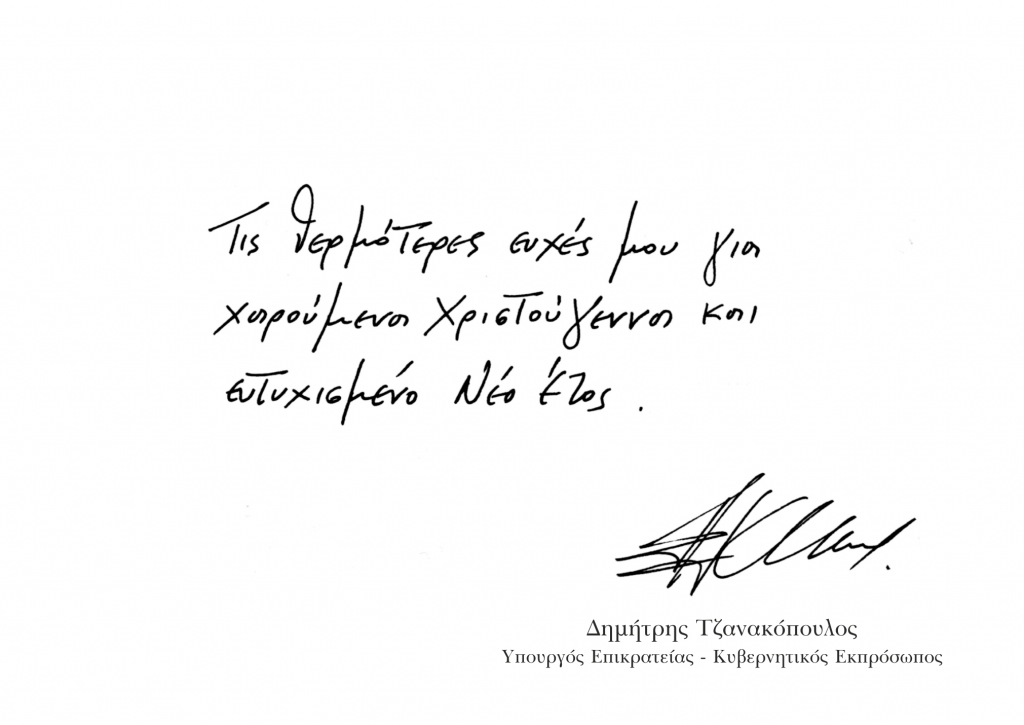 Τις θερμότερες ευχές μου για
χαρούμενα Χριστούγεννα και
ευτυχισμένο Νέο Έτος.
Δημήτρης Τζανακόπουλος
Υπουργός Επικρατείας - Κυβερνητικός Εκπρόσωπος